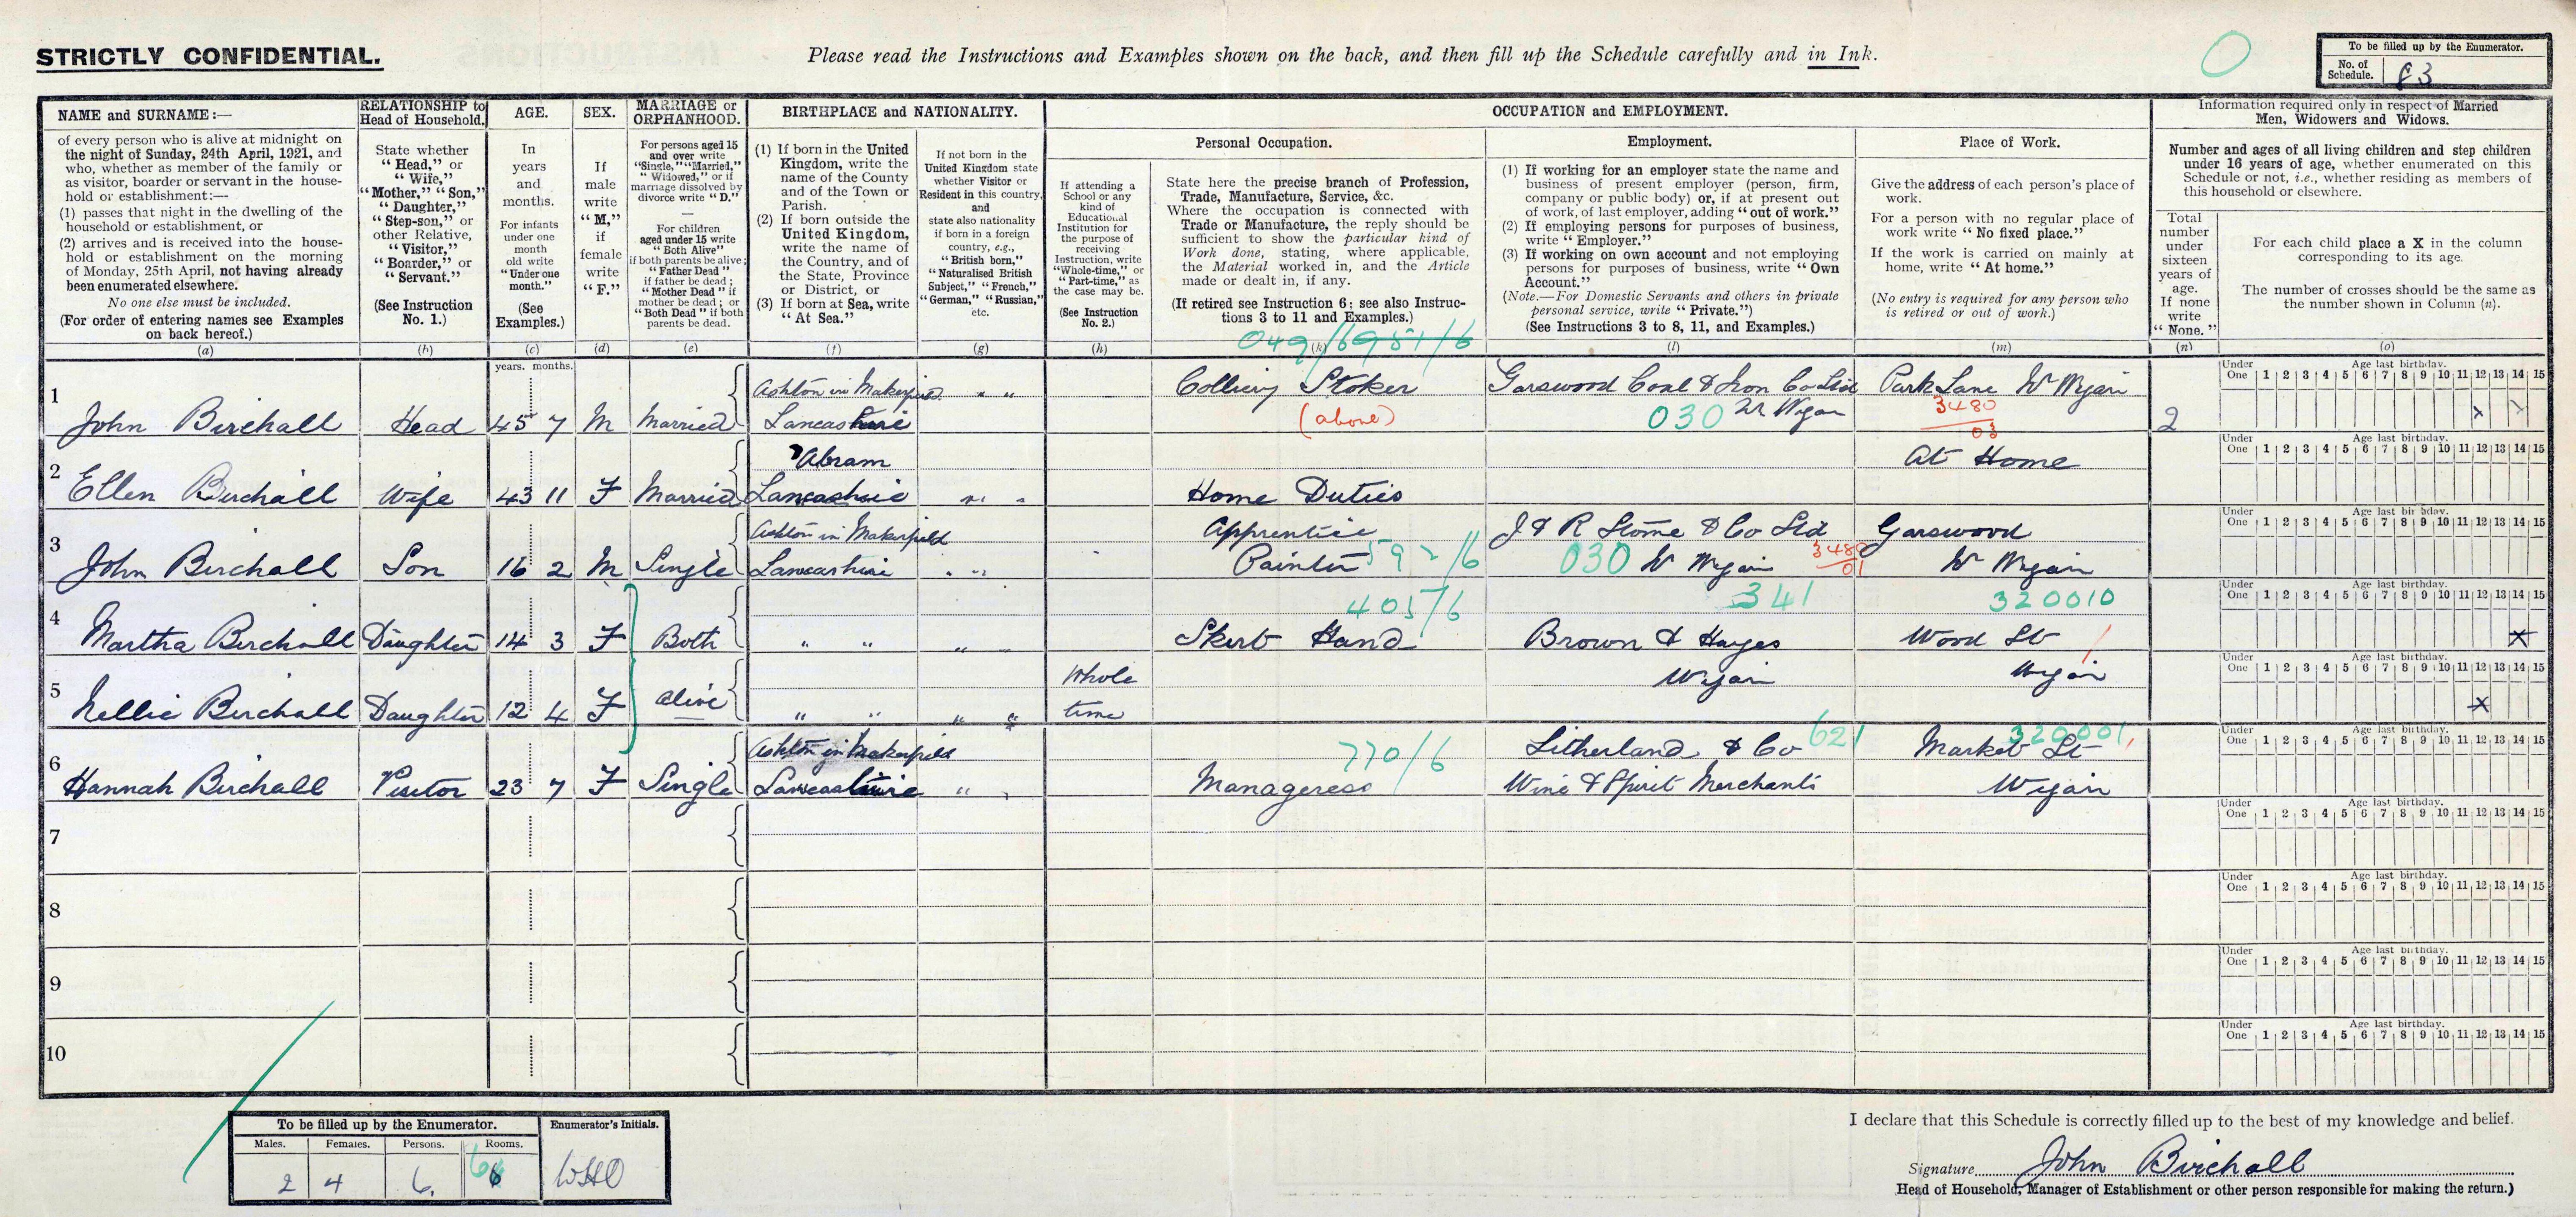 STRICTLY CONFIDENTIAL.
Please read the Instructions and Examples shown on the back, and then fill up the Schedule carefully and in Ink.
To be filled up by the Enumerator.
No. of Schedule. 83
NAME and SURNAME:—
of every person who is alive at midnight on
the night of Sunday, 24th April, 1921, and
who, whether as member of the family or
as visitor, boarder or servant in the house-
hold or establishment:—
(1) passes that night in the dwelling of the
household or establishment, or
(2) arrives and is received into the house-
hold or establishment on the morning
of Monday, 25th April, not having already
been enumerated elsewhere.
No one else must be included.
(For order of entering names see Examples
on back hereof.)
(a)
RELATIONSHIP to
Head of Household.
State whether
"Head," or
"Wife,"
"Mother," "Son,"
"Daughter,"
"Step-son," or
other Relative,
"Visitor,"
"Boarder," or
"Servant."
(See Instruction
No. 1.)
(b)
AGE.
In
years
and
months.
For infants
under one
month
old write
"Under one
month."
(See
Examples.)
(c)
SEX.
If
male
write
"M,"
if
female
write
"F."
(d)
MARRIAGE or
ORPHANHOOD.
For persons aged 15
and over write
"Single," "Married,"
"Widowed," or if
marriage dissolved by
divorce write "D."
For children
aged under 15 write
"Both Alive"
if both parents be alive;
"Father Dead"
if father be dead;
"Mother Dead" if
mother be dead; or
"Both Dead" if both
parents be dead.
(e)
BIRTHPLACE and NATIONALITY.
(1) If born in the United
Kingdom, write the
name of the County
and of the Town or
Parish.
(2) If born outside the
United Kingdom,
write the name of
the Country, and of
the State, Province
or District, or
(3) If born at Sea, write
"At Sea."
(f)
If not born in the
United Kingdom state
whether Visitor or
Resident in this country,
and
state also nationality
if born in a foreign
country, e.g.,
"British born,"
"Naturalised British
Subject," "French,"
"German," "Russian,"
etc.
(g)
OCCUPATION and EMPLOYMENT.
Personal Occupation.
If attending a
School or any
kind of
Educational
Institution for
the purpose of
receiving
Instruction, write
"Whole-time," or
"Part-time," as
the case may be.
(See Instruction
No. 2.)
(h)
State here the precise branch of Profession,
Trade, Manufacture, Service, &c.
Where the occupation is connected with
Trade or Manufacture, the reply should be
sufficient to show the particular kind of
Work done, stating, where applicable,
the Material worked in, and the Article
made or dealt in, if any.
(If retired see Instruction 6: see also Instruc-
tions 3 to 11 and Examples.)
(k)
049/6 951/6
Employment.
(1) If working for an employer state the name and
business of present employer (person, firm,
company or public body) or, if at present out
of work, of last employer, adding "out of work."
(2) If employing persons for purposes of business,
write "Employer."
(3) If working on own account and not employing
persons for purposes of business, write "Own
Account."
(Note.—For Domestic Servants and others in private
personal service, write "Private.")
(See Instructions 3 to 8, 11, and Examples.)
(l)
Place of Work.
Give the address of each person's place of
work.
For a person with no regular place of
work write "No fixed place."
If the work is carried on mainly at
home, write "At home."
(No entry is required for any person who
is retired or out of work.)
(m)
Information required only in respect of Married
Men, Widowers and Widows.
Number and ages of all living children and step children
under 16 years of age, whether enumerated on this
Schedule or not, i.e., whether residing as members of
this household or elsewhere.
Total
number
under
sixteen
years of
age.
If none
write
"None."
(n)
For each child place a X in the column
corresponding to its age.
The number of crosses should be the same as
the number shown in Column (n).
(o)
years. months.
Under One Age last birthday. 1 2 3 4 5 6 7 8 9 10 11 12 13 14 15
1 Ashton in Makerfield " " Colliery Stoker Garswood Coal & Iron Co Ltd Park Lane Nr Wigan
John Birchall Head 45 7 M Married Lancashire (above) 030 Nr Wigan 3480 03 2 x x
Under One Age last birthday. 1 2 3 4 5 6 7 8 9 10 11 12 13 14 15
2 Abram At Home
Ellen Birchall Wife 43 11 F Married Lancashire " " Home Duties
Under One Age last birthday. 1 2 3 4 5 6 7 8 9 10 11 12 13 14 15
3 Ashton in Makerfield Apprentice J & R Stone & Co Ltd Garswood
John Birchall Son 16 2 M Single Lancashire " " Painter 592/6 030 Nr Wigan 3480 01 Nr Wigan
Under One Age last birthday. 1 2 3 4 5 6 7 8 9 10 11 12 13 14 15
4 405/6 341 320010
Martha Birchall Daughter 14 3 F Both " " " " Skirt Hand Brown & Hayes Wood St X
Under One Age last birthday. 1 2 3 4 5 6 7 8 9 10 11 12 13 14 15
5 Whole Wigan Wigan
Nellie Birchall Daughter 12 4 F alive " " " " time X
Under One Age last birthday. 1 2 3 4 5 6 7 8 9 10 11 12 13 14 15
6 Ashton in Makerfield 770/6 Litherland & Co 621 Market St 320001
Hannah Birchall Visitor 23 7 F Single Lancashire " " Manageress Wine & Spirit Merchants Wigan
Under One Age last birthday. 1 2 3 4 5 6 7 8 9 10 11 12 13 14 15
7
Under One Age last birthday. 1 2 3 4 5 6 7 8 9 10 11 12 13 14 15
8
Under One Age last birthday. 1 2 3 4 5 6 7 8 9 10 11 12 13 14 15
9
Under One Age last birthday. 1 2 3 4 5 6 7 8 9 10 11 12 13 14 15
10
To be filled up by the Enumerator. Enumerator's Initials.
Males. Females. Persons. Rooms.
2 4 6. 6 WHO
I declare that this Schedule is correctly filled up to the best of my knowledge and belief.
Signature John Birchall
Head of Household, Manager of Establishment or other person responsible for making the return.)